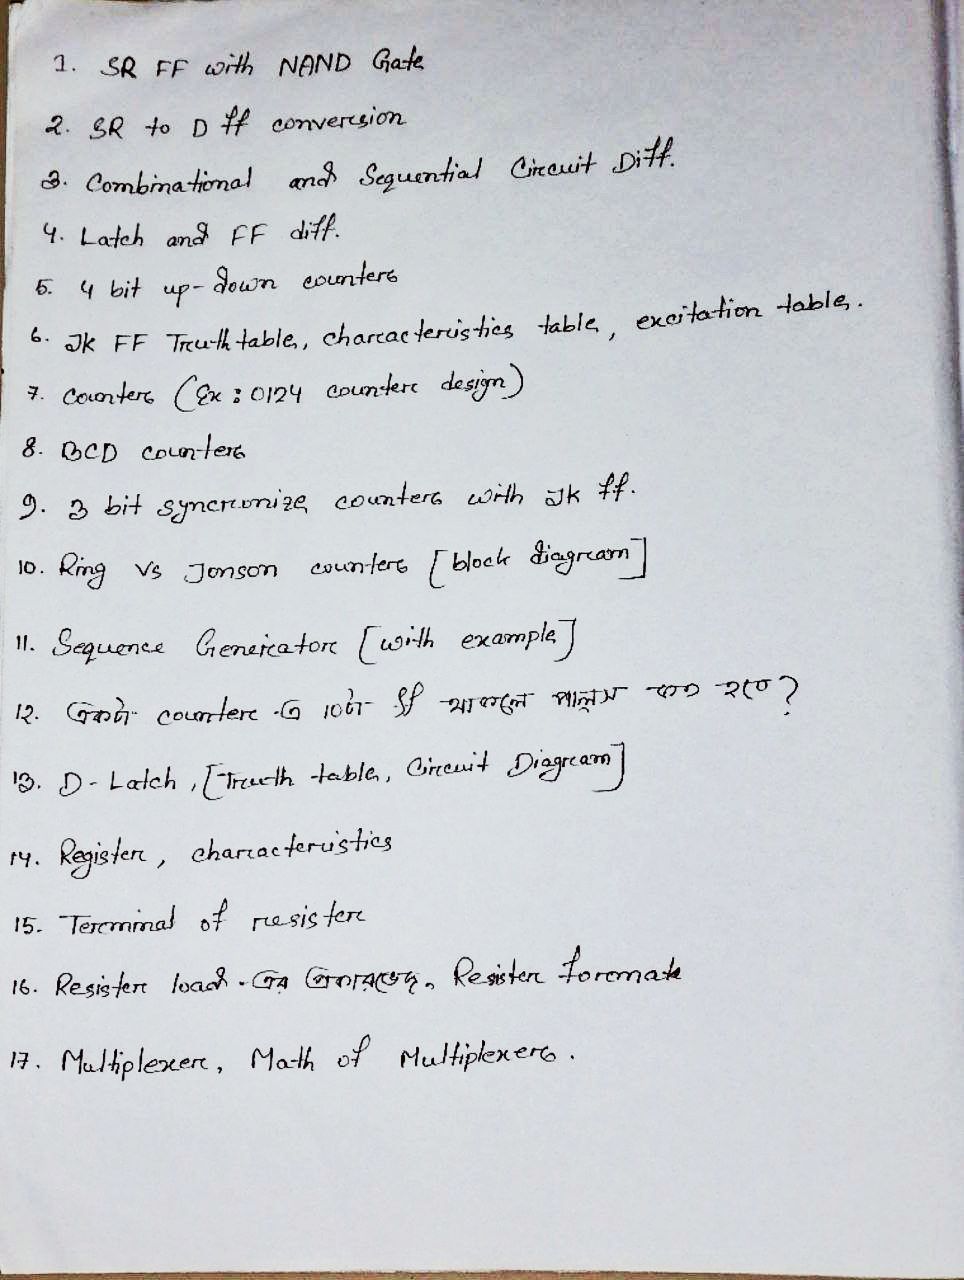 1. SR FF with NAND Gate
2. SR to D ff conversion
3. Combinational and Sequential Circuit Diff.
4. Latch and FF diff.
5. 4 bit up-down counters
6. JK FF Truth table, characteristics table, excitation table.
7. Counters (Ex: 0124 counter design)
8. BCD counters
9. 3 bit syncronize counters with JK ff.
10. Ring Vs Jonson counters [block diagram]
11. Sequence Generator [with example]
12. একটা counter এ ১০টা ff থাকলে পালস কত হবে?
13. D-Latch, [Truth table, Circuit Diagram]
14. Register, characteristics
15. Terminal of resister
16. Resister load এর প্রকারভেদ, Resister formate
17. Multiplexer, Math of Multiplexers.